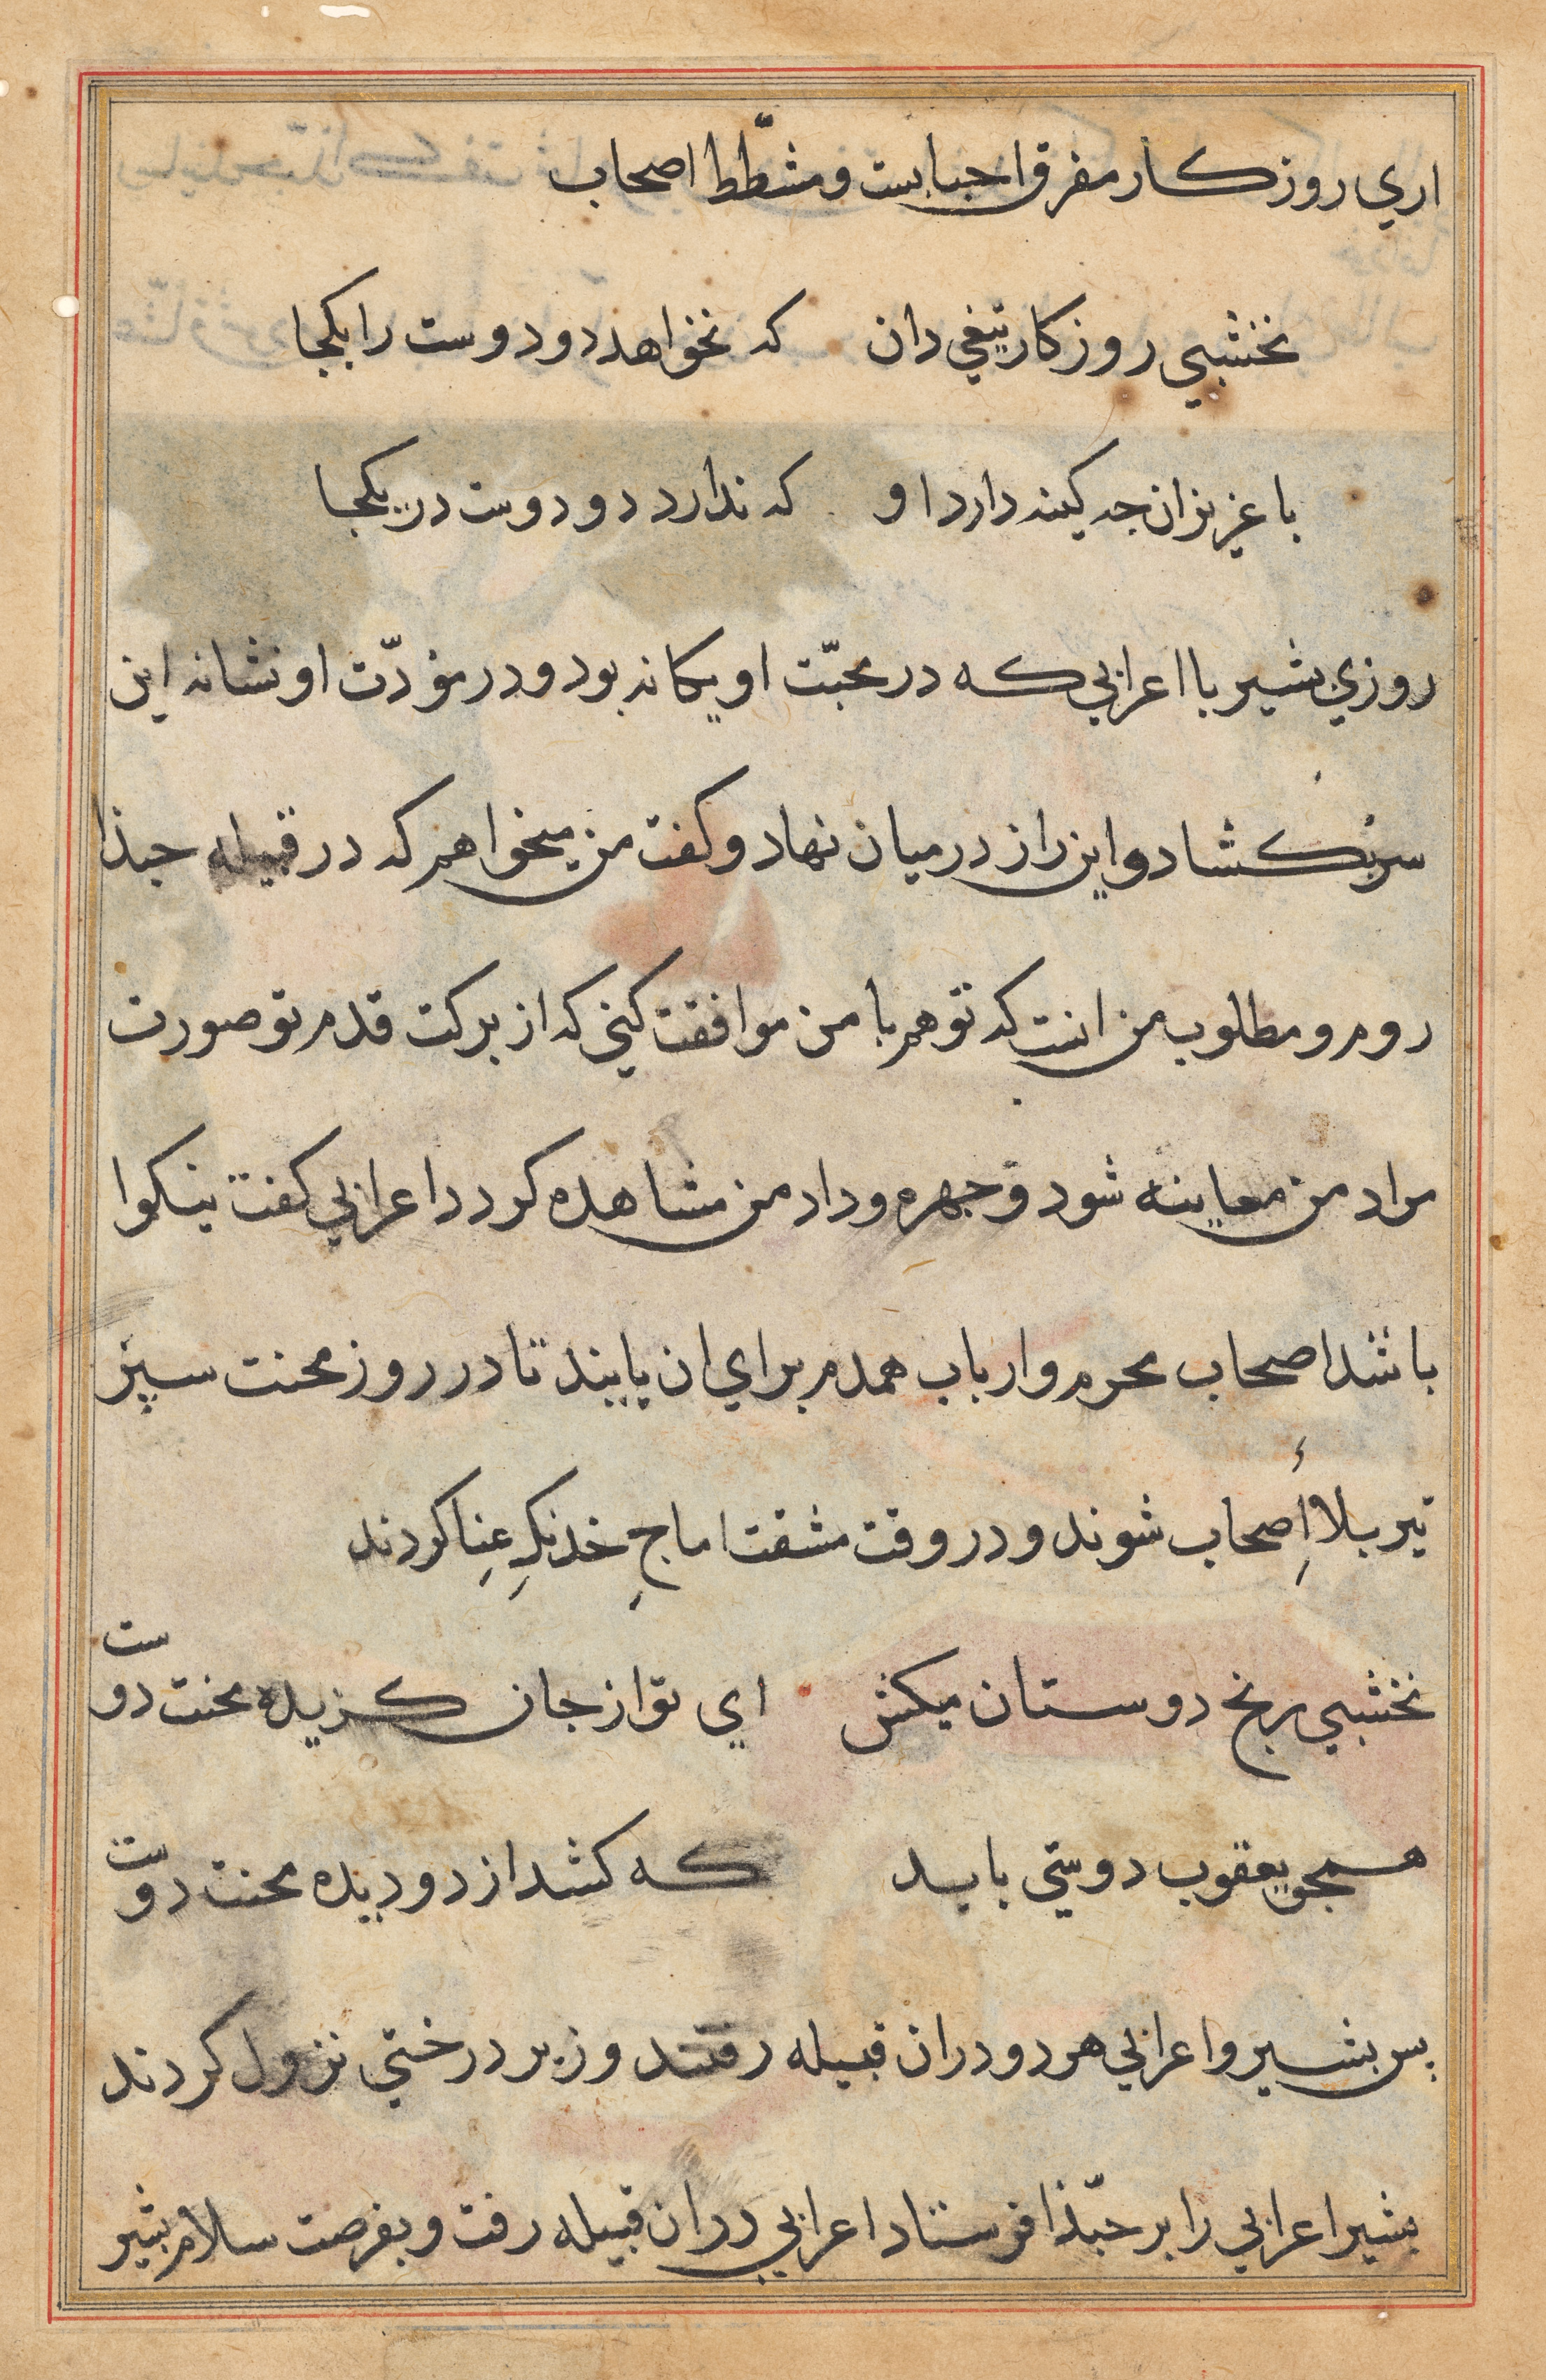 اري روزكار مفرق احبابست و مشطّط اصحاب
نخشبي روزكار تيغي دان كه نخواهد دو دوست را يكجا
با عزيزان جه كينه دارد او كه ندارد دو دوست در يكجا
روزي بشير با اعرابي كه در محبّت او يكانه بود و در مودّت او نشانه اين
سر بكشاد و اين راز در ميان نهاد و كفت من ميخواهم كه در قبيله جبذا
روم و مطلوب من انست كه تو هم با من موافقت كني كه از بركت قدم تو صورت
مراد من معاينه شود و جهره وداد من مشاهده كردد اعرابي كفت نيكوا
باشد اصحاب محرم و ارباب همدم براي ان يابند تا در روز محنت سپر
تير بلا أصحاب شوند و در وقت مشقت اماجِ خدنكِ عِنا كردند
نخشبي رنج دوستان ميكش اي تو از جان كزيده محنت دوست
همجو يعقوب دوستي بايد كه كشد از دو ديده محنت دوست
پس بشير و اعرابي هر دو دران قبيله رفتند و زير درختي نزول كردند
بشير اعرابي را بر حبّذا فرستاد اعرابي دران قبيله رفت و بفرصت سلام بشير